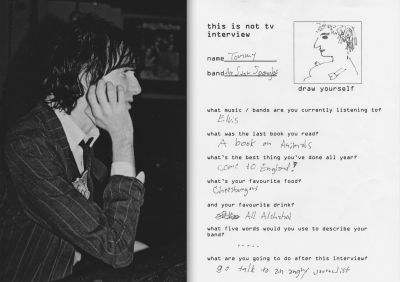 this is not tv
interview
name Tommy
band
draw yourself
what music / bands are you currently listening to?
Elvis
what was the last book you read?
A book on Animals
what's the best thing you've done all year?
come to England!
what's your favourite food?
Cheeseburgers
and your favourite drink?
All Alchohol
what five words would you use to describe your
band?
.....
what are you going to do after this interview?
go talk to an angry journalist